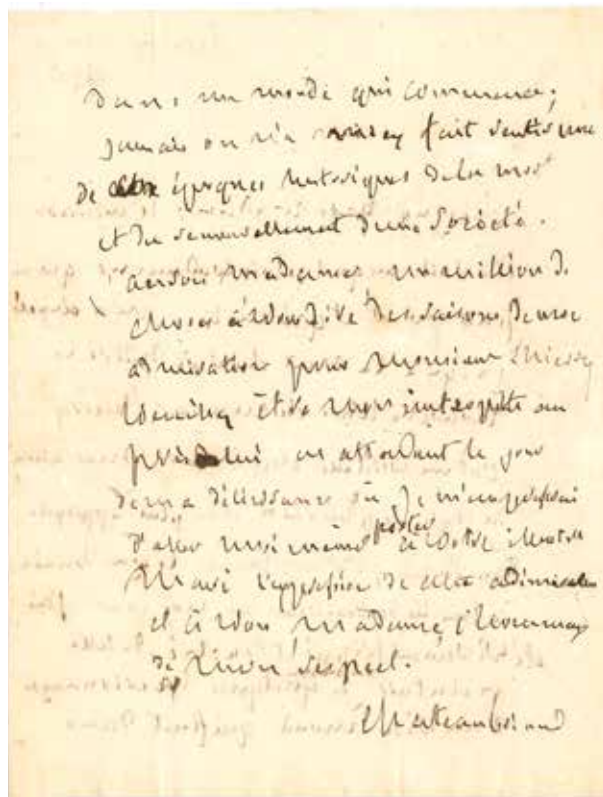 dans un monde qui commence;
jamais on n'a mieux fait sentir une
de ces époques historiques de la mort
et du renouvellement d'une société.
madame, un million de
choses à vous dire des raisons de mon
admiration pour Monsieur Thiers
veuillez être mon interprète au
près de lui en attendant le jour
de ma délivrance où je m'empresserai
d'aller moi même porter à votre illustre
Mari l'expression de cette admiration
et à vous madame, l'hommage
de mon respect.
Chateaubriand